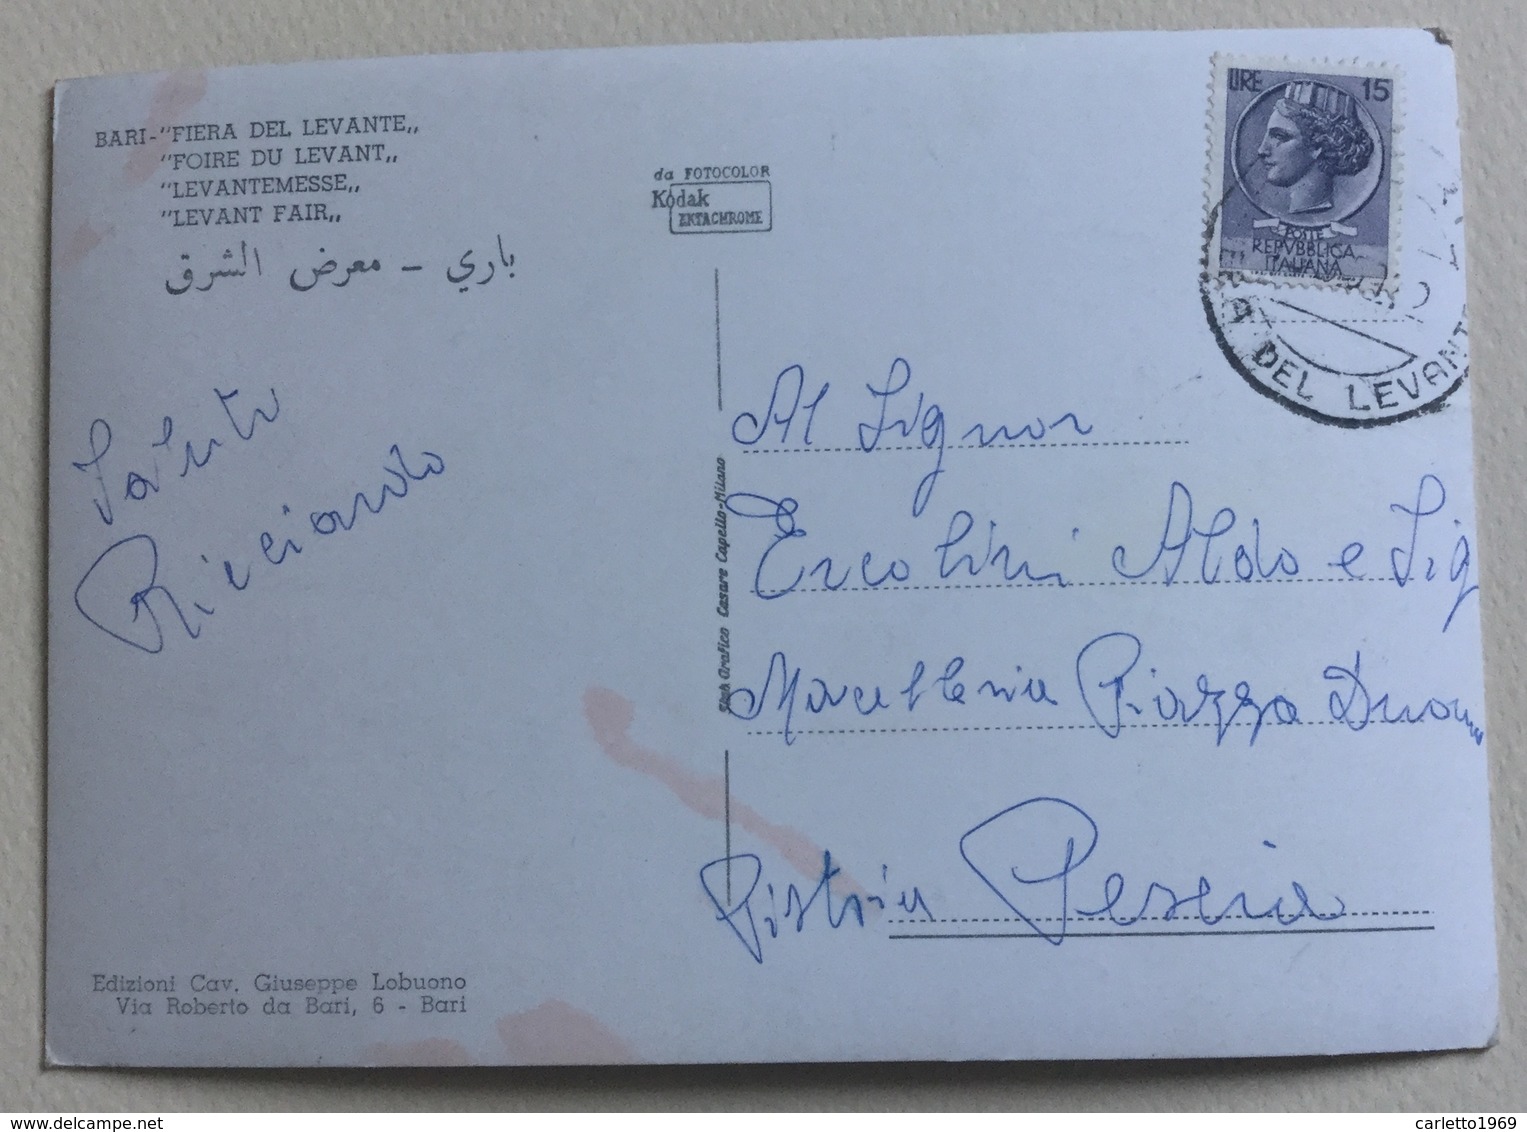 BARI-"FIERA DEL LEVANTE,,
"FOIRE DU LEVANT,,
"LEVANTEMESSE,,
"LEVANT FAIR,,
باري - معرض الشرق
da FOTOCOLOR
Kodak
EKTACHROME
LIRE 15
POSTE
REPVBBLICA
ITALIANA
DEL LEVANTE
Saluti
Ricciardo
Al Signor
Ercolini Aldo e Sig
Piazza Duomo
Pistoia Pescia
Stab Grafico Cesare Capello-Milano
Edizioni Cav. Giuseppe Lobuono
Via Roberto da Bari, 6 - Bari
carletto1969